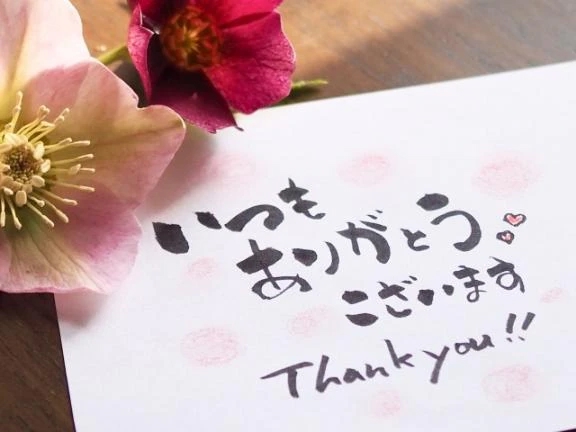 いつも
ありがとう
ございます
Thank you!!